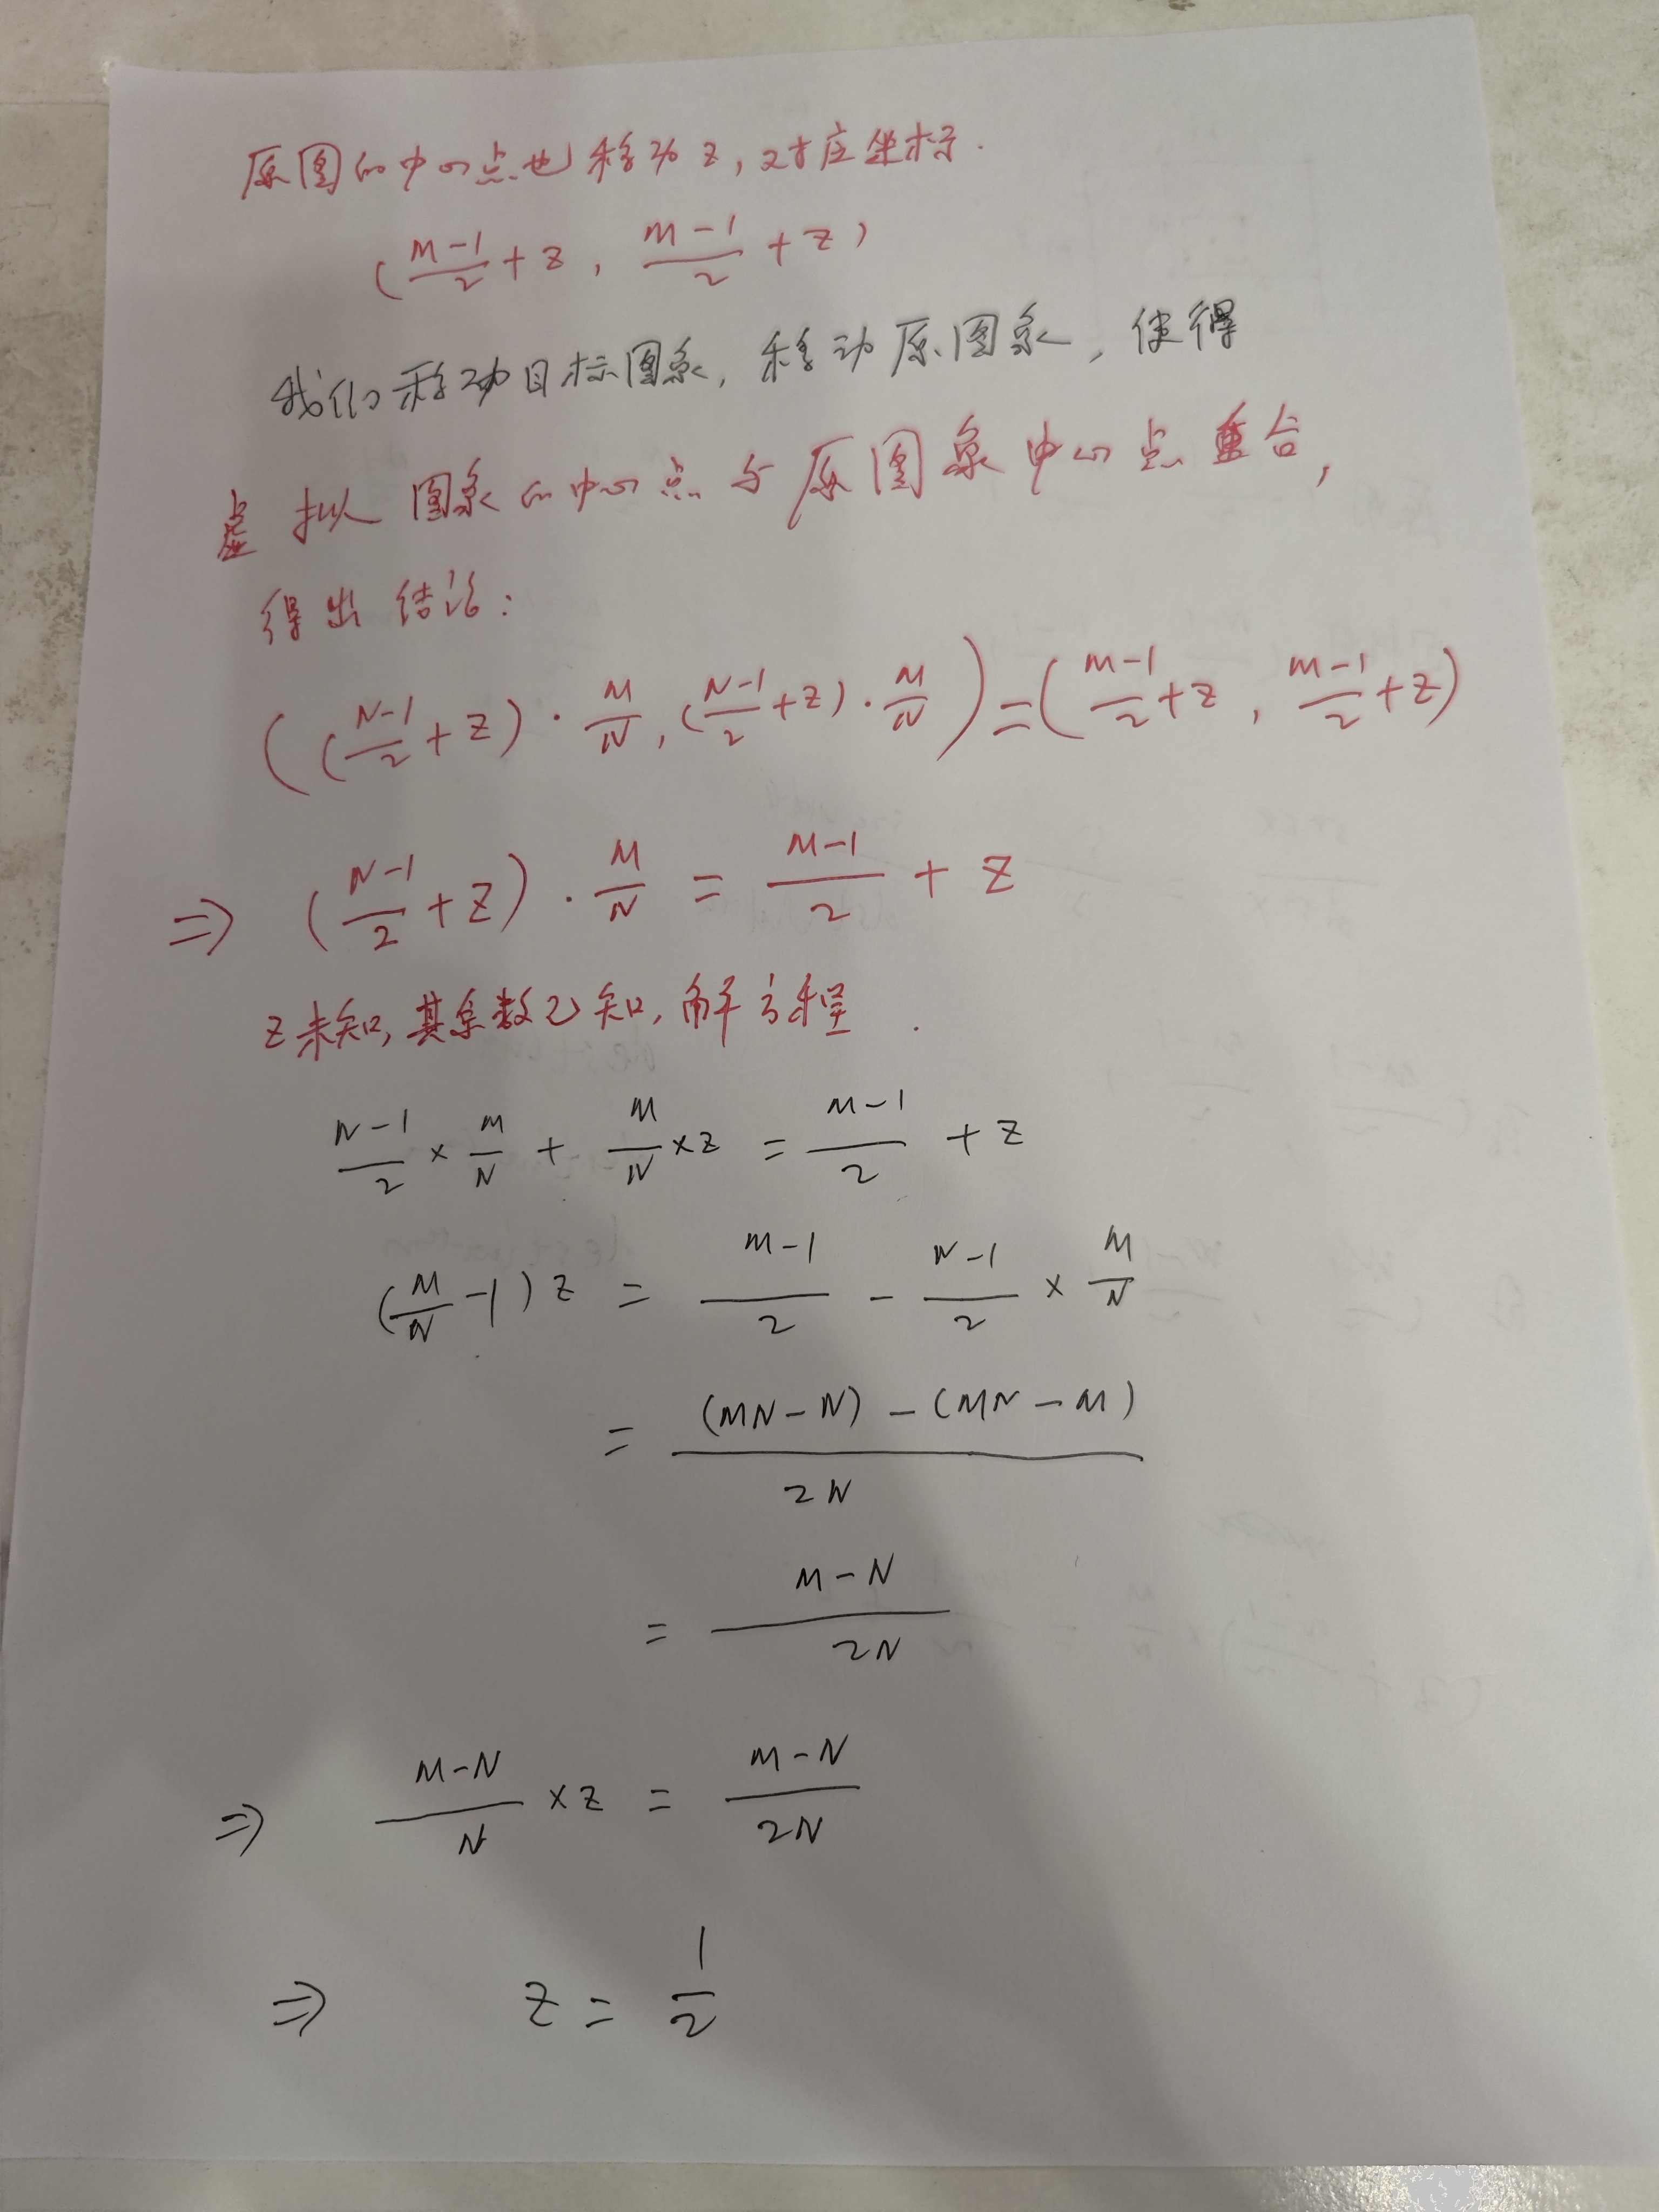 原图的中心点也移动z,对应坐标.
(\frac{M-1}{2}+z, \frac{M-1}{2}+z)
我们移动目标图象,移动原图象,使得
虚拟图象的中心点与原图象中心点重合,
得出结论:
((\frac{N-1}{2}+z)·\frac{M}{N}, (\frac{N-1}{2}+z)·\frac{M}{N})=(\frac{M-1}{2}+z, \frac{M-1}{2}+z)
⇒ (\frac{N-1}{2}+z)·\frac{M}{N} = \frac{M-1}{2}+z
z未知,其系数已知,解方程.
\frac{N-1}{2}×\frac{M}{N}+\frac{M}{N}×z=\frac{M-1}{2}+z
(\frac{M}{N}-1)z=\frac{M-1}{2}-\frac{N-1}{2}×\frac{M}{N}
=\frac{(MN-N)-(MN-M)}{2N}
=\frac{M-N}{2N}
⇒ \frac{M-N}{N}×z=\frac{M-N}{2N}
⇒ z=\frac{1}{2}